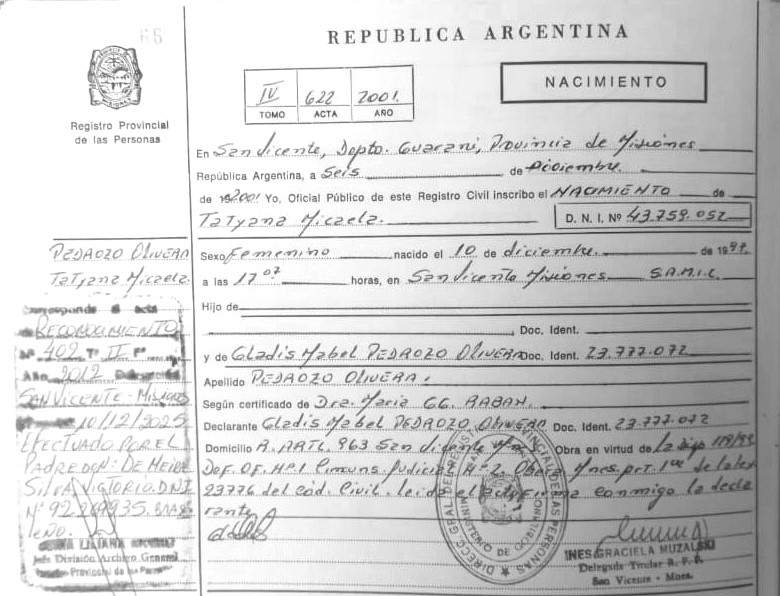 66
REPUBLICA ARGENTINA
IV 622 2001.
TOMO ACTA AÑO
NACIMIENTO
Registro Provincial
de las Personas
En San Vicente, Depto. Guaraní, Provincia de Misiones
República Argentina, a Seis de Diciembre.
de 192001 Yo, Oficial Público de este Registro Civil inscribo el NACIMIENTO de
Tatyana Micaela. D. N. I. Nº 43.759.052
PEDROZO OLIVERA
Tatyana Micaela.
Sexo Femenino nacido el 10 de diciembre. de 1997.
a las 17 07 horas, en San Vicente Misiones S.A.M.I.C.
Hijo de
Doc. Ident.
y de Gladis Mabel PEDROZO OLIVERA Doc. Ident. 23.777.072
Apellido PEDROZO OLIVERA.
Según certificado de Dra. Maria GG. RABAN.
Declarante Gladis Mabel PEDROZO OLIVERA Doc. Ident. 23.777.072
Domicilio A. ARTL. 963 San Vicente Obra en virtud de
Nº 1 Judicial Nº 2. de la Ley
23776 del Cód. Civil. leida el acta firma conmigo la decla
rante.
Corresponde al acta
de RECONOCIMIENTO
Nº 409 Tº II Fº
Año 2012 Delegación
SAN VICENTE - MISIONES
10/12/2025
EFECTUADO POR EL
PADRE DON: DE MEIRA
SILVA VICTORIO. D.N.I
Nº 92.269935. BRASI
LEÑO.
LILIANA
Jefe División Archivo General
Registro Provincial de las Personas
DIRECC. GRAL. DEL REGIST. PROVINCIAL DE LAS PERSONAS
MINISTERIO DE GOBIERNO
INES GRACIELA MUZALSKI
Delegada Titular R. P. P.
San Vicente - Mnes.